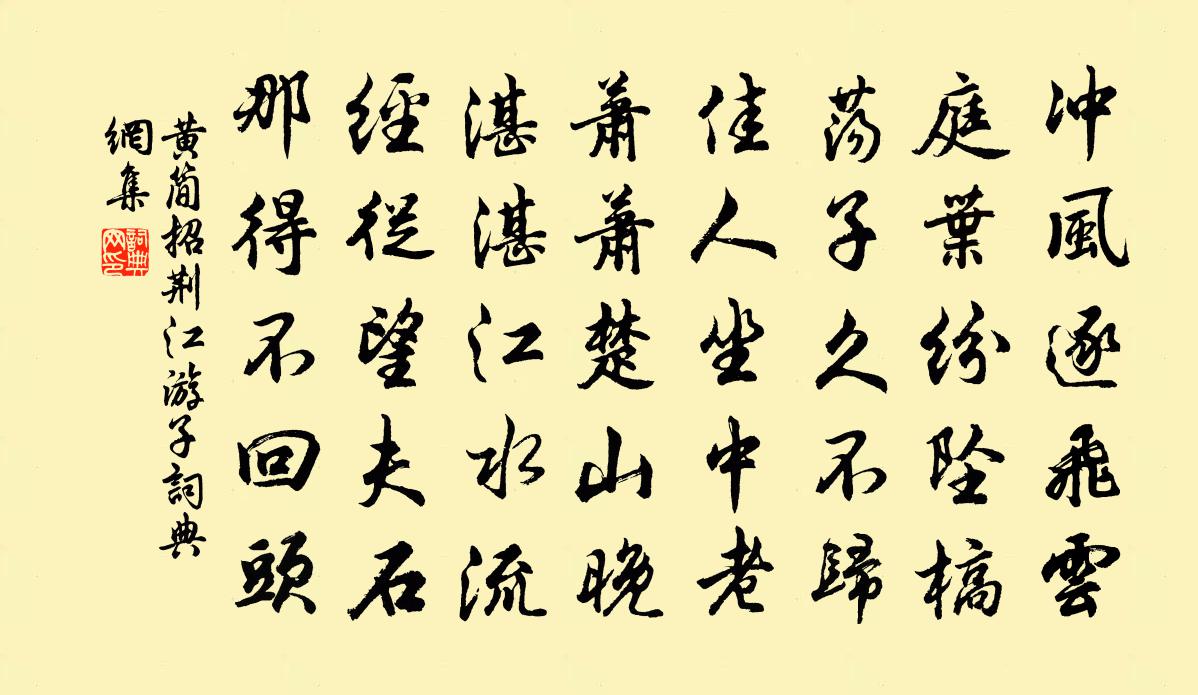 冲風逐飛雲
庭葉紛坠槁
蕩子久不歸
佳人坐中老
蕭蕭楚山晚
湛湛江水流
經從望夫石
那得不回頭
黄简招荆江游子詞典
網集
詞典
网印